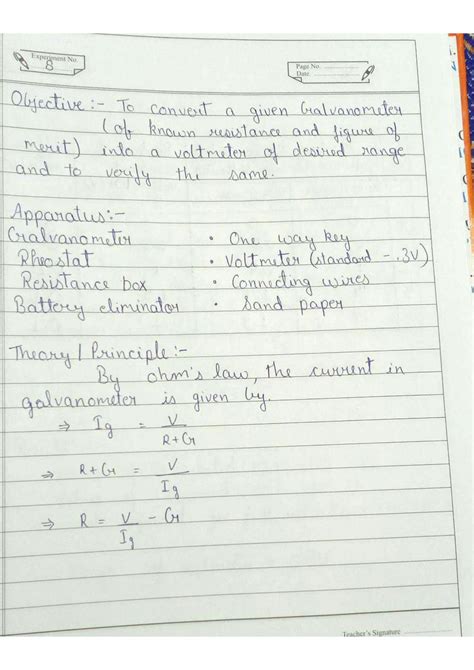 Experiment No.
8
Page No.
Date
Objective :- To convert a given Galvanometer
(of known resistance and figure of
merit) into a voltmeter of desired range
and to verify the same.
Apparatus:-
Galvanometer • One way key
Rheostat • Voltmeter (standard - .3V)
Resistance box • Connecting wires
Battery eliminator • Sand paper
Theory / Principle :-
By ohm's law, the current in
galvanometer is given by.
⇒ Ig = V / R+G
⇒ R+G = V / Ig
⇒ R = V / Ig - G
Teacher's Signature